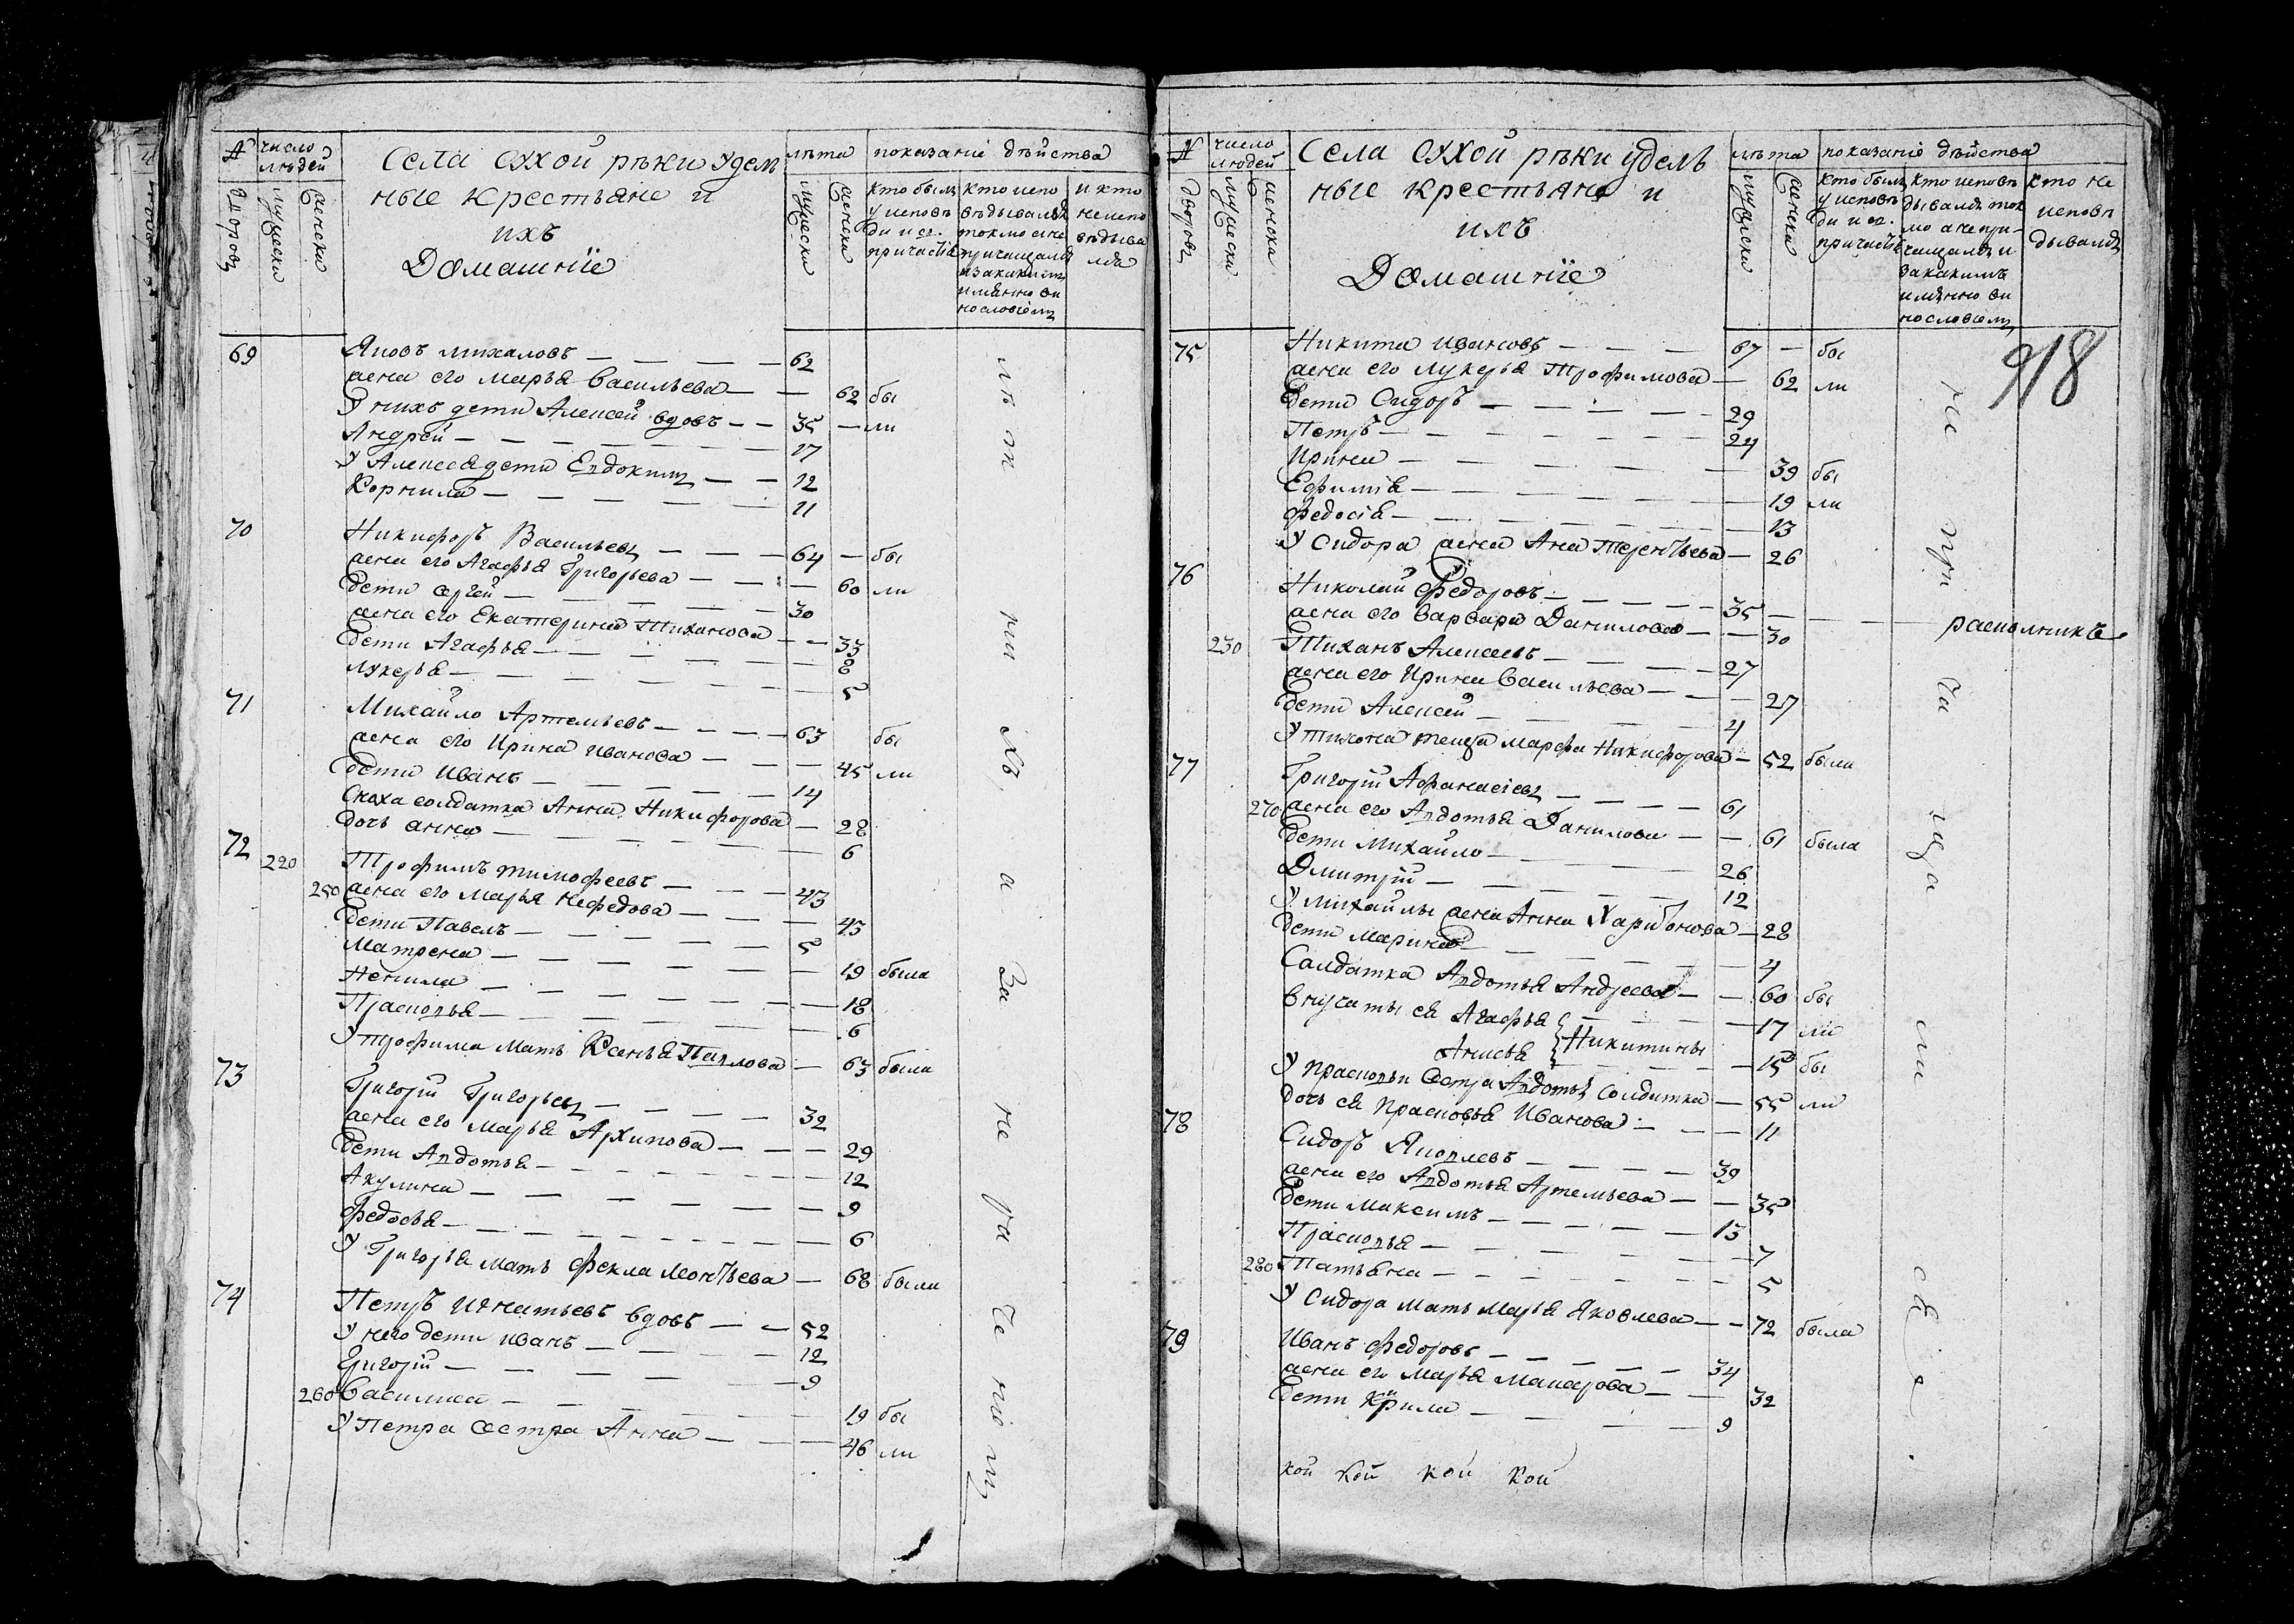 № число людей Села Сухой рѣки удель лѣта показаніе дѣйства
дворовъ мужеска женска ные крестьяне и мужеска женска
ихъ
Домашніе
кто былъ у исповѣди и св. причастія
кто исповѣдывался токмо а не причащался и за какимъ имянно винословіемъ
и кто не исповѣдывался
69 Яковъ михаловъ — — — — 62
жена его Марья Васильева — — 62 бы
У нихъ дети Алексей вдовъ — — 35 — ли
Андрей — — — — — 17
У Алексея дети Евдокимъ — — 12
Корнила — — — — — 11
70 Никифоръ Васильевъ — — — 64 — бы
жена его Агафья Григорьева — — — 60 ли
Дети Сергей — — — — — 30
жена его Екатерина Тиханова — — 33
Дети Агафья — — — — — 8
Лукерья — — — — — 5
71 Михайло Артемьевъ — — — — 63 бы
жена его Ирина Иванова — — — 45 ли
Дети Иванъ — — — — — 14
Сноха солдатка Анна Никифорова — 28
дочь анна — — — — — 6
72 220 Трофимъ тимофеевъ — — — 43
250 жена его Марья Нефедова — — — 43
Дети Павелъ — — — — — 5
Матрена — — — — — 19 была
Ненила — — — — — 18
Прасковья — — — — — 6
У трофима Мать Ксенья Павлова — 63 была
73 Григорій Григорьевъ — — — — 32
жена его Марья Архипова — — — 29
Дети Авдотья — — — — — 12
Акулина — — — — — 9
Федосья — — — — — 6
У Григорья мать Фекла Леонтьева — 68 была
74 Петръ Игнатьевъ вдовъ — — 52
У него дети иванъ — — — 12
Григорій — — — — 9
260 Василиса — — — — — 19 бы
У Петра Сестра Анна — — — 46 ли
лѣт ни хъ, а За не ра че ні емъ
№ число людей Села Сухой рѣки удель лѣта показаніе дѣйства
дворовъ мужеска женска ные крестьяне и мужеска женска
ихъ
Домашніе
кто былъ у исповѣди и св. причастія
кто исповѣдывался токмо а не причащался и за какимъ имянно винословіемъ
кто не исповѣдывался
918
75 Никита ивановъ — — — 67 — бы
жена его лукерья Трофимова — 62 ли
Дети Сидоръ — — — — — 29
Петръ — — — — — 24
Ирина — — — — — 39 бы
Ефимія — — — — — 19 ли
Федосія — — — — — 13
У Сидора жена Ана Терентьева — 26
76 Николай Федоровъ — — — — 35
жена его Варвара Данилова — — 30 — — — раскольникъ
230 Тиханъ Алексеевъ — — — 27
жена его Ирина Васильева — — — 27
дети Алексей — — — — — 4
У тихона теща Марфа Никифорова — 52 была
77 Григорій Афанасіевъ — — — — 61
270 жена его Авдотья Данилова — — 61 была
Дети Михайло — — — — — 26
Дмитрій — — — — — 12
У михайлы жена Анна Харитонова — 28
дети Марина — — — — — 4
Салдатка Авдотья Андреева — — 60 бы
внучаты ея Агафья — — — 17 ли
Анисья } Никитины — — 15 бы
У прасковьи Сестра Авдотья Солдатка — 55 ли
дочь ея прасковья Иванова — — — 11
78 Сидоръ Яковлевъ — — — — 39
жена его Авдотья Артемьева — — 35
Дети Максимъ — — — — — 13
Прасковья — — — — — 7
280 Татьяна — — — — — 5
У Сидора Мать Марья Яковлева — — 72 была
79 Иванъ Федоровъ — — — — 34
жена его Марья Макарова — — 32
дети Кирила — — — — 9
не при ча ща ли ся.
кой кой кой кой